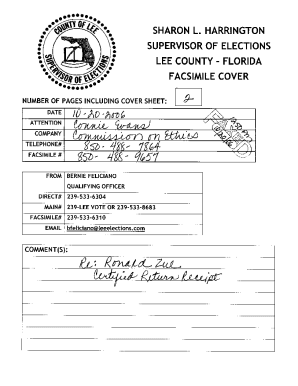 COUNTY OF LEE
SUPERVISOR OF ELECTIONS
SHARON L. HARRINGTON
SUPERVISOR OF ELECTIONS
LEE COUNTY - FLORIDA
FACSIMILE COVER
NUMBER OF PAGES INCLUDING COVER SHEET: 2
DATE 10-20-2006
ATTENTION Connie Evans
COMPANY Commission on Ethics
TELEPHONE# 850-488-7864
FACSIMILE # 850-488-9657
FAXED
FROM BERNIE FELICIANO
QUALIFYING OFFICER
DIRECT# 239-533-6304
MAIN# 239-LEE VOTE OR 239-533-8683
FACSIMILE# 239-533-6310
EMAIL bfeliciano@leeelections.com
COMMENT(S):
Re: Ronald Zue
Certified Return Receipt